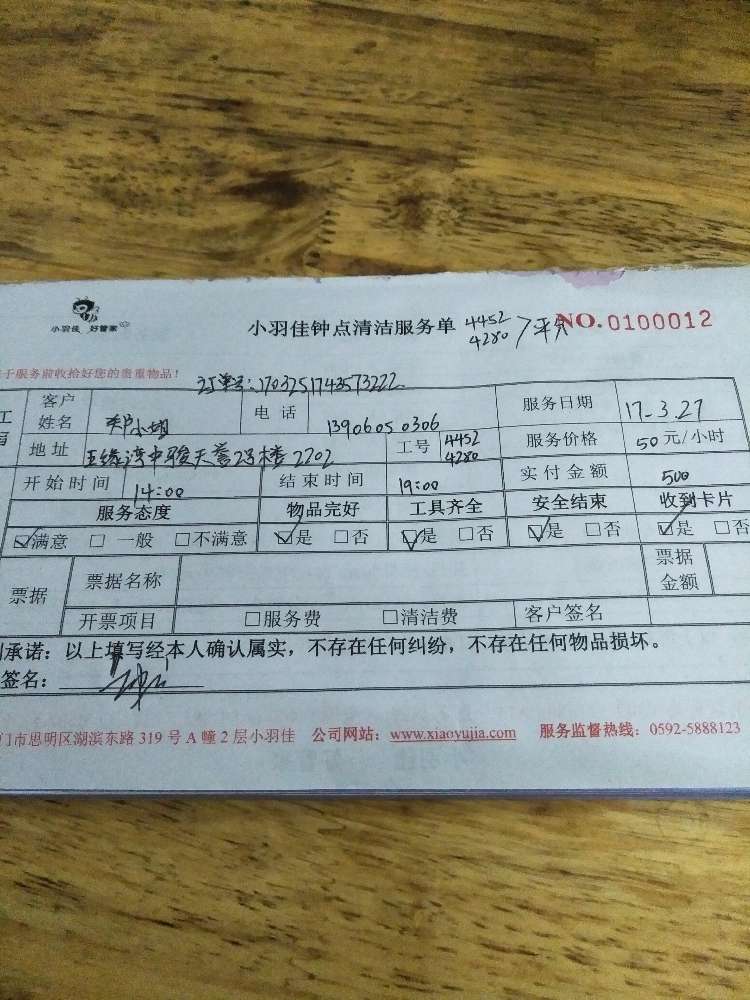 小羽佳 好管家
小羽佳钟点清洁服务单 4452 4280 平分 NO.0100012
于服务前收拾好您的贵重物品！
订单号：1703251743573222
客户姓名 郑小姐 电话 13906050306 服务日期 17-3.27
地址 五缘湾中骏天誉2号楼2202 工号 4452 4280 服务价格 50元/小时
开始时间 14:00 结束时间 19:00 实付金额 500
服务态度 物品完好 工具齐全 安全结束 收到卡片
☑满意 □一般 □不满意 ☑是 □否 ☑是 □否 ☑是 □否 ☑是 □否
票据 票据名称 票据金额
开票项目 □服务费 □清洁费 客户签名
承诺：以上填写经本人确认属实，不存在任何纠纷，不存在任何物品损坏。
签名：
门市思明区湖滨东路 319 号 A 幢 2 层小羽佳 公司网站：www.xiaoyujia.com 服务监督热线：0592-5888123